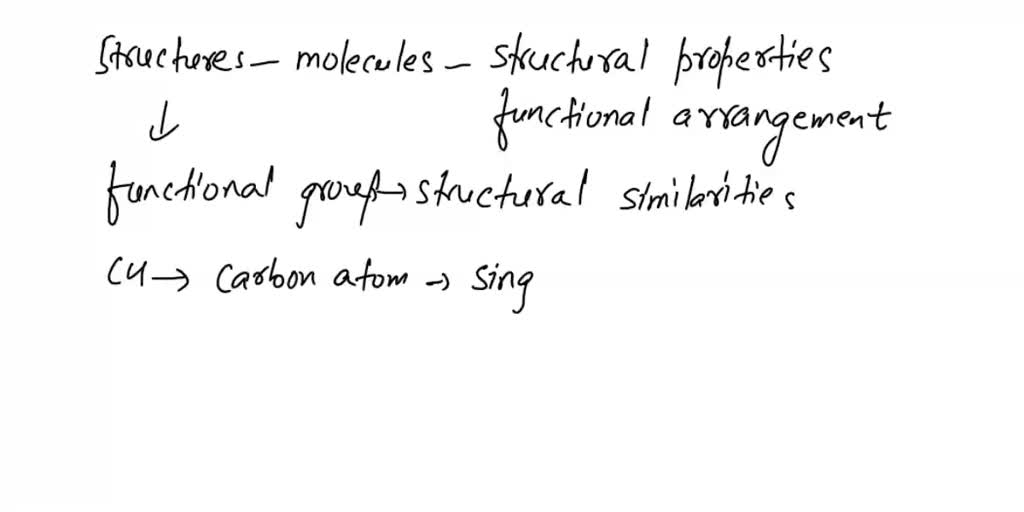 Structures – molecules – structural properties
↓ functional arrangement
functional group → structural similarities
C4 → Carbon atom → Sing